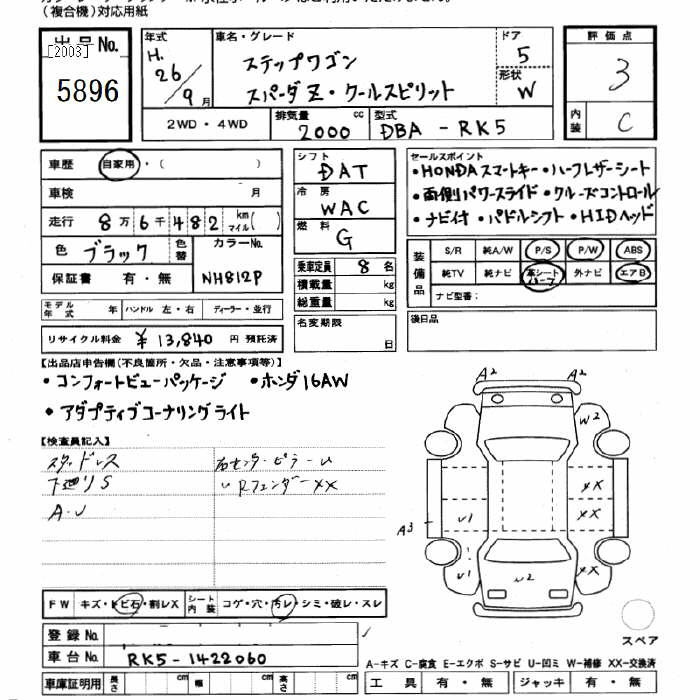 （複合機）対応用紙
出品No.
[2003]
5896
年式
H.
26/9月
車名・グレード
ステップワゴン
スパーダZ・クールスピリット
ドア
5
形状
W
評価点
3
内装
C
2WD・4WD
排気量
cc
2000
型式
DBA - RK5
車歴 自家用・（ ）
車検 月
走行 8万6千482 km マイル( )
色 ブラック
色替
カラーNo.
NH812P
保証書 有・無
シフト
DAT
冷房
WAC
燃料
G
セールスポイント
・HONDAスマートキー・ハーフレザーシート
・両側パワースライド・クルーズコントロール
・ナビイオ・パドルシフト・HIDヘッド
装備品
S/R 純A/W P/S P/W ABS
純TV 純ナビ 革シート 外ナビ エアB
ハーフ
ナビ型番：
乗車定員 8名
積載量 kg
総重量 kg
モデル年式 年
ハンドル 左・右
ディーラー・並行
リサイクル料金 ¥13,840 円 預託済
名変期限
日
後日品
【出品店申告欄(不良箇所・欠品・注意事項等)】
・コンフォートビューパッケージ ・ホンダ16AW
・アダプティブコーナリングライト
【検査員記入】
スタッドレス
下廻りS
A・U
右センターピラーU
U Rフェンダー XX
A2 A2
W2
XX
A3
U1
XX
U1
U2
XX
スペア
FW キズ・トビ石・割レX
シート内装
コゲ・穴・汚レ・シミ・破レ・スレ
登録No.
車台No. RK5-1422060
車庫証明用
長さ cm
幅 cm
高さ cm
A-キズ C-腐食 E-エクボ S-サビ U-凹ミ W-補修 XX-交換済
工具 有・無
ジャッキ 有・無